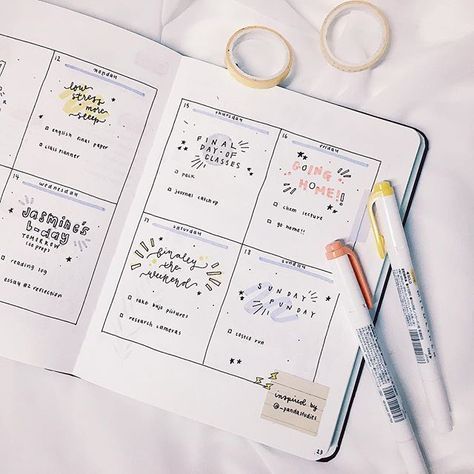 12
monday
low
stress
more
sleep
english final paper
clean planner
14
wednesday
JASMINE'S
b-day
TOMORROW
reading log
essay #2 reflection
15
thursday
FINAL
DAY·OF
CLASSES
pack
journal catchup
16
friday
GOING
HOME!!
chem lecture
go home!!
17
saturday
finally
the
weekend
take bujo pictures
research cameras
18
sunday
SUNDAY
FUNDAY
costco run
inspired by
@-pandastudies
23